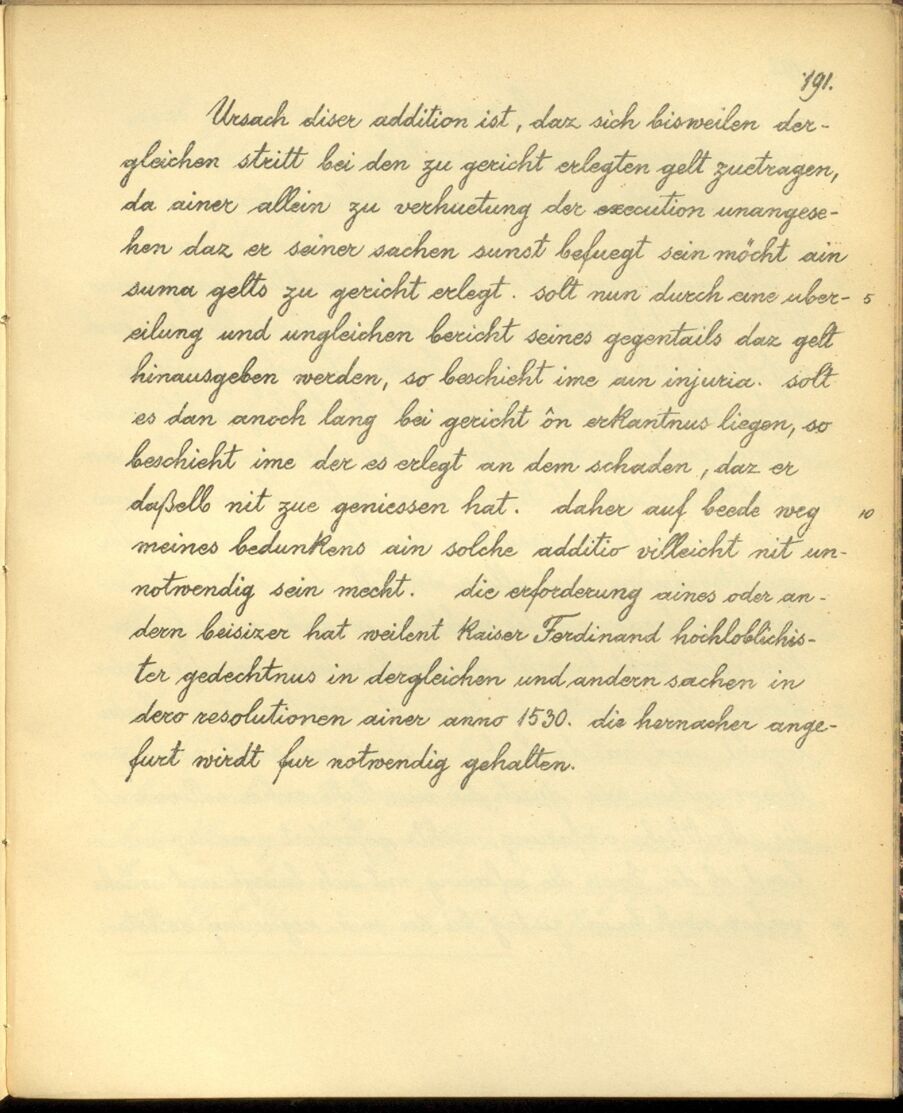 191.
Ursach diser addition ist, daz sich bisweilen der-
gleichen stritt bei den zu gericht erlegten gelt zuetragen,
da ainer allein zu verhuetung der execution unangese-
hen daz er seiner sachen sunst befuegt sein möcht ain
suma gelts zu gericht erlegt. solt nun durch eine uber- 5
eilung und ungleichen bericht seines gegentails daz gelt
hinausgeben werden, so beschieht ime ain injuria. solt
es dan anoch lang bei gericht ôn erkantnus liegen, so
beschieht ime der es erlegt an dem schaden, daz er
daßelb nit zue geniessen hat. daher auf beede weg 10
meines bedunkens ain solche additio villeicht nit un-
notwendig sein mecht. die erforderung aines oder an-
dern beisizer hat weilent Kaiser Ferdinand hochloblichis-
ter gedechtnus in dergleichen und andern sachen in
dero resolutionen ainer anno 1530. die hernacher ange-
furt wirdt fur notwendig gehalten.